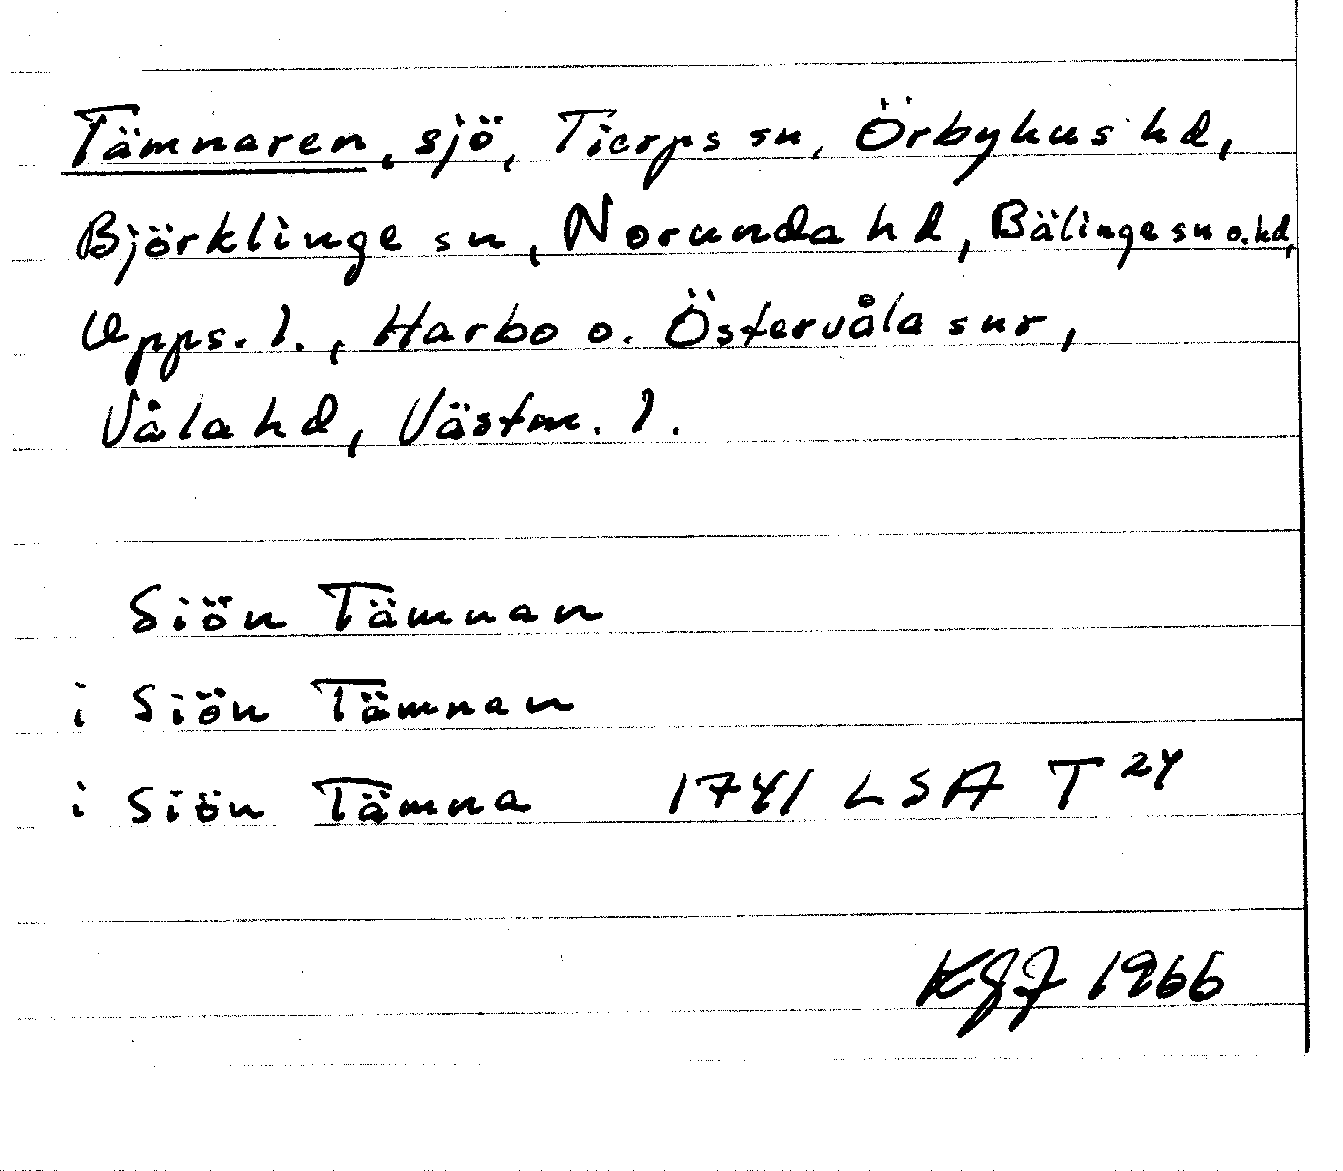 Tämnaren, sjö, Tierps sn, Örbyhus hd,
Björklinge sn, Norunda hd, Bälinge sn o. hd,
Upps. l., Harbo o. Östervåla snr,
Våla hd, Västm. l.
Siön Tämnan
i Siön Tämnan
i Siön Tämna 1741 LSA T 24
KGJ 1966